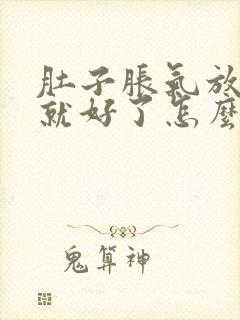 肚子脹氣放
就好了怎麼
鬼算神